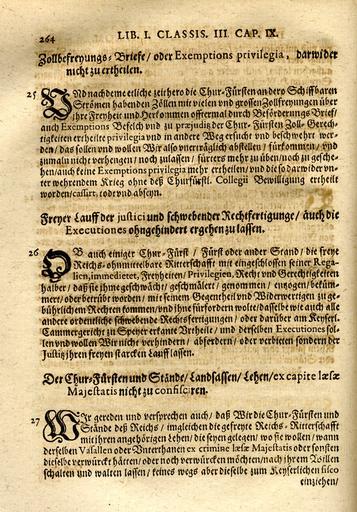 264 LIB. I. CLASSIS. III. CAP. IX.
Zollbefreyungs-Briefe/oder Exemptions privilegia, darwider
nicht zu ertheilen.
25 UNd nachdeme etliche zeithero die Chur-Fürsten an dero Schiffbaren
Strömen habenden Zöllen mit vielen und grossen Zollfreyungen über
ihre Freyheit und Herkommen offtermal durch Beförderungs Brief/
auch Exemptions Befelch und zu præjudiz der Chur-Fürsten Zoll-Gerech-
tigkeiten ertheilte privilegia und in andere Weg ersucht und beschwehrt wer-
den/das sollen und wollen Wir also unerträglich abstellen/fürkommen/und
zumaln nicht verhengen/noch zulassen/fürters mehr zu üben/noch zu gesche-
hen/auch keine Exemptions privilegia mehr ertheilen/und die so darwider un-
ter wehrendem Krieg ohne deß Churfürstl. Collegii Bewilligung ertheilt
worden/cassirt, todt und absein.
Freyer Lauff der justici und schwebender Rechtfertigunge/auch die
Executiones ohngehindert ergehen zu lassen.
26 OB auch einiger Chur-Fürst/Fürst oder ander Stand/die freye
Reichs-ohnmittelbare Ritterschafft mit eingeschlossen seiner Rega-
lien, immedietet, Freyheiten/Privilegien, Recht und Gerechtigkeiten
halber/daß sie ihme geschwächt/geschmälert/genommen/entzogen/beküm-
mert/oder betrübt worden/mit seinem Gegentheil und Widerwertigen zu ge-
bührlichen Rechten kommen/und ihne fürfordern wolte/dasselbe wie auch alle
andere ordentliche schwebende Rechtfertigungen/oder darüber am Keyserl.
Cammergericht zu Speyer erkante Urtheile/und derselben Executiones sol-
len und wollen Wir nicht verhindern/abfordern/oder verbieten sondern der
Justiz ihren freyen starcken Lauff lassen.
Der Chur-Fürsten und Stände/Landsassen/Lehen/ex capite læsæ
Majestatis nicht zu confisciren.
27 WIr gereden und versprechen auch/daß Wir die Chur-Fürsten und
Stände deß Reichs/imgleichen die gefreyte Reichs-Ritterschafft
mit ihren angehörigen Lehen/die seyen gelegen/wo sie wollen/wann
derselben Vasallen oder Unterthanen ex crimine læsæ Majestatis oder sonsten
dieselbe verwürckt hätten/oder noch verwürcken möchten/nach ihrem Willen
schalten und walten lassen/keines wegs aber dieselbe zum Keyserlichen fisco
einziehen/